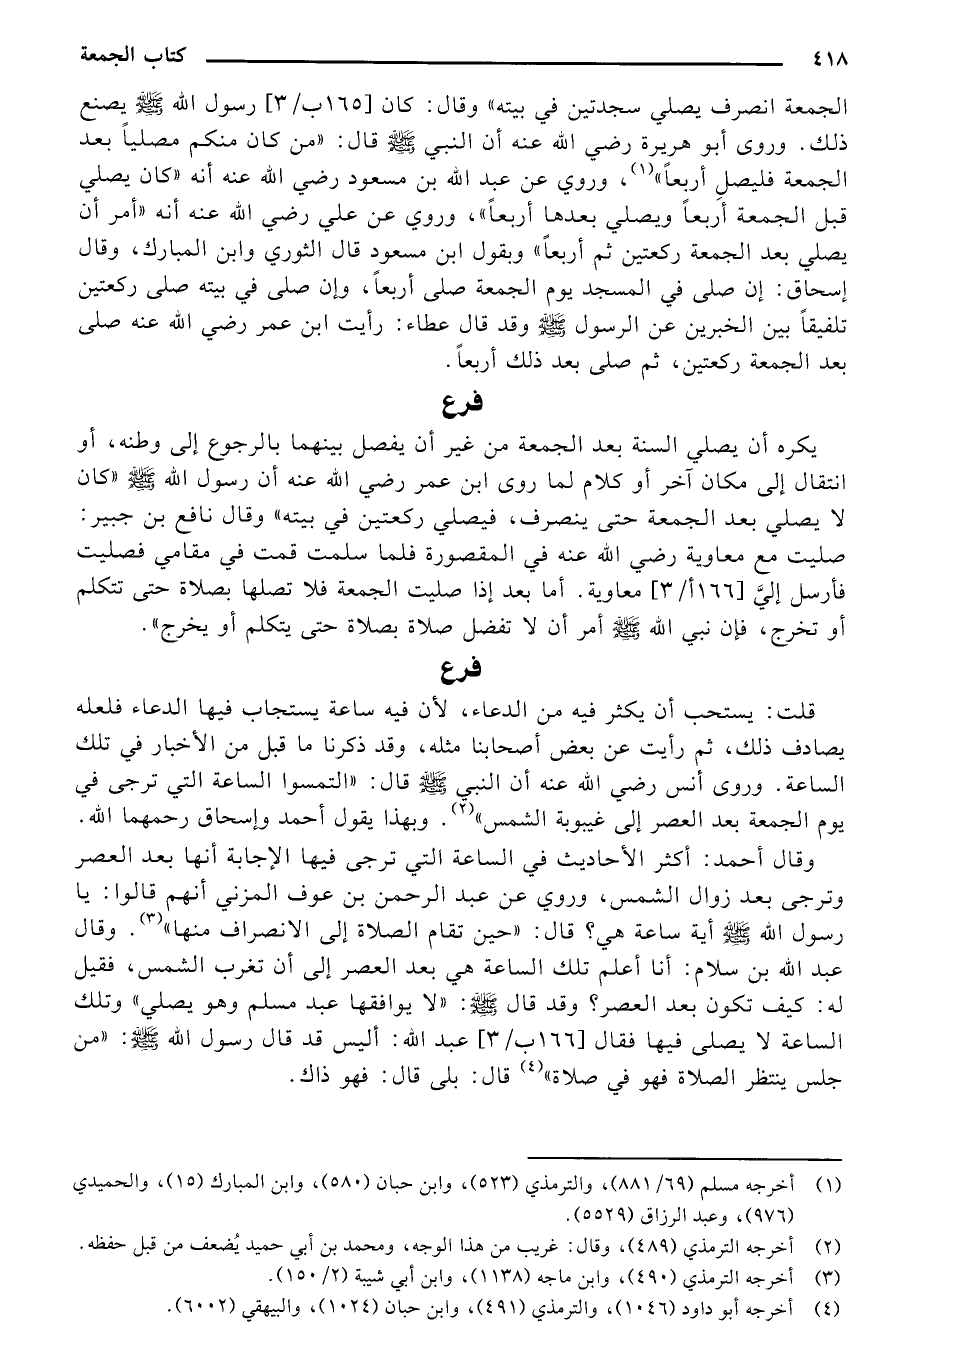 ٤١٨ كتاب الجمعة
الجمعة انصرف يصلي سجدتين في بيته» وقال: كان [١٦٥ب/ ٣] رسول الله ﷺ يصنع
ذلك. وروى أبو هريرة رضي الله عنه أن النبي ﷺ قال: «من كان منكم مصلياً بعد
الجمعة فليصلِ أربعاً»(١)، وروي عن عبد الله بن مسعود رضي الله عنه أنه «كان يصلي
قبل الجمعة أربعاً ويصلي بعدها أربعاً»، وروي عن علي رضي الله عنه أنه «أمر أن
يصلي بعد الجمعة ركعتين ثم أربعاً» وبقول ابن مسعود قال الثوري وابن المبارك، وقال
إسحاق: إن صلى في المسجد يوم الجمعة صلى أربعاً، وإن صلى في بيته صلى ركعتين
تلفيقاً بين الخبرين عن الرسول ﷺ وقد قال عطاء: رأيت ابن عمر رضي الله عنه صلى
بعد الجمعة ركعتين، ثم صلى بعد ذلك أربعاً.
فرع
يكره أن يصلي السنة بعد الجمعة من غير أن يفصل بينهما بالرجوع إلى وطنه، أو
انتقال إلى مكان آخر أو كلام لما روى ابن عمر رضي الله عنه أن رسول الله ﷺ «كان
لا يصلي بعد الجمعة حتى ينصرف، فيصلي ركعتين في بيته» وقال نافع بن جبير:
صليت مع معاوية رضي الله عنه في المقصورة فلما سلمت قمت في مقامي فصليت
فأرسل إليَّ [١٦٦أ/ ٣] معاوية. أما بعد إذا صليت الجمعة فلا تصلها بصلاة حتى تتكلم
أو تخرج، فإن نبي الله ﷺ أمر أن لا تفضل صلاة بصلاة حتى يتكلم أو يخرج».
فرع
قلت: يستحب أن يكثر فيه من الدعاء، لأن فيه ساعة يستجاب فيها الدعاء فلعله
يصادف ذلك، ثم رأيت عن بعض أصحابنا مثله، وقد ذكرنا ما قبل من الأخبار في تلك
الساعة. وروى أنس رضي الله عنه أن النبي ﷺ قال: «التمسوا الساعة التي ترجى في
يوم الجمعة بعد العصر إلى غيبوبة الشمس»(٢). وبهذا يقول أحمد وإسحاق رحمهما الله.
وقال أحمد: أكثر الأحاديث في الساعة التي ترجى فيها الإجابة أنها بعد العصر
وترجى بعد زوال الشمس، وروي عن عبد الرحمن بن عوف المزني أنهم قالوا: يا
رسول الله ﷺ أية ساعة هي؟ قال: «حين تقام الصلاة إلى الانصراف منها»(٣). وقال
عبد الله بن سلام: أنا أعلم تلك الساعة هي بعد العصر إلى أن تغرب الشمس، فقيل
له: كيف تكون بعد العصر؟ وقد قال ﷺ: «لا يوافقها عبد مسلم وهو يصلي» وتلك
الساعة لا يصلى فيها فقال [١٦٦ب/ ٣] عبد الله: أليس قد قال رسول الله ﷺ: «من
جلس ينتظر الصلاة فهو في صلاة»(٤) قال: بلى قال: فهو ذاك.
(١) أخرجه مسلم (٦٩/ ٨٨١)، والترمذي (٥٢٣)، وابن حبان (٥٨٠)، وابن المبارك (١٥)، والحميدي
(٩٧٦)، وعبد الرزاق (٥٥٢٩).
(٢) أخرجه الترمذي (٤٨٩)، وقال: غريب من هذا الوجه، ومحمد بن أبي حميد يُضعف من قبل حفظه.
(٣) أخرجه الترمذي (٤٩٠)، وابن ماجه (١١٣٨)، وابن أبي شيبة (٢/ ١٥٠).
(٤) أخرجه أبو داود (١٠٤٦)، والترمذي (٤٩١)، وابن حبان (١٠٢٤)، والبيهقي (٦٠٠٢).